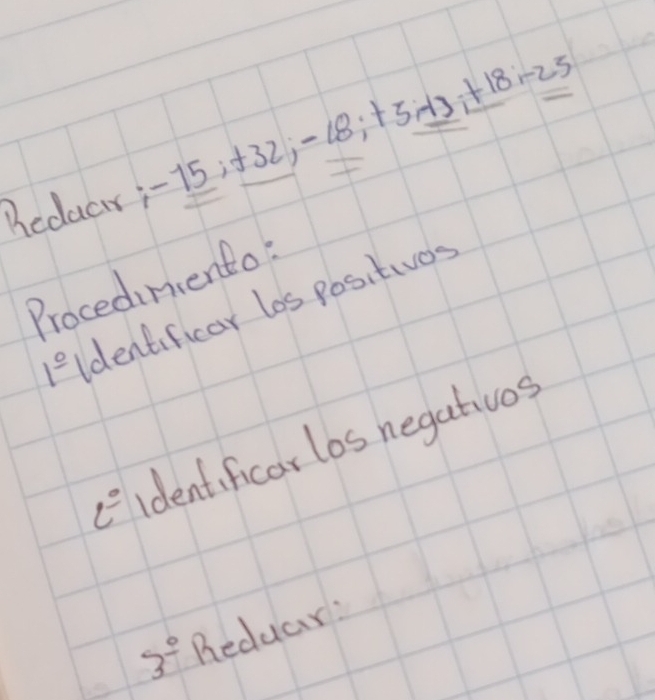 Reducir ;-15 ;+32 ;-18 ;+5 ;-13 ;+18 ;-25
Procedimiento:
1º Identificar los positivos
2º Identificar los negativos
3º Reducir: